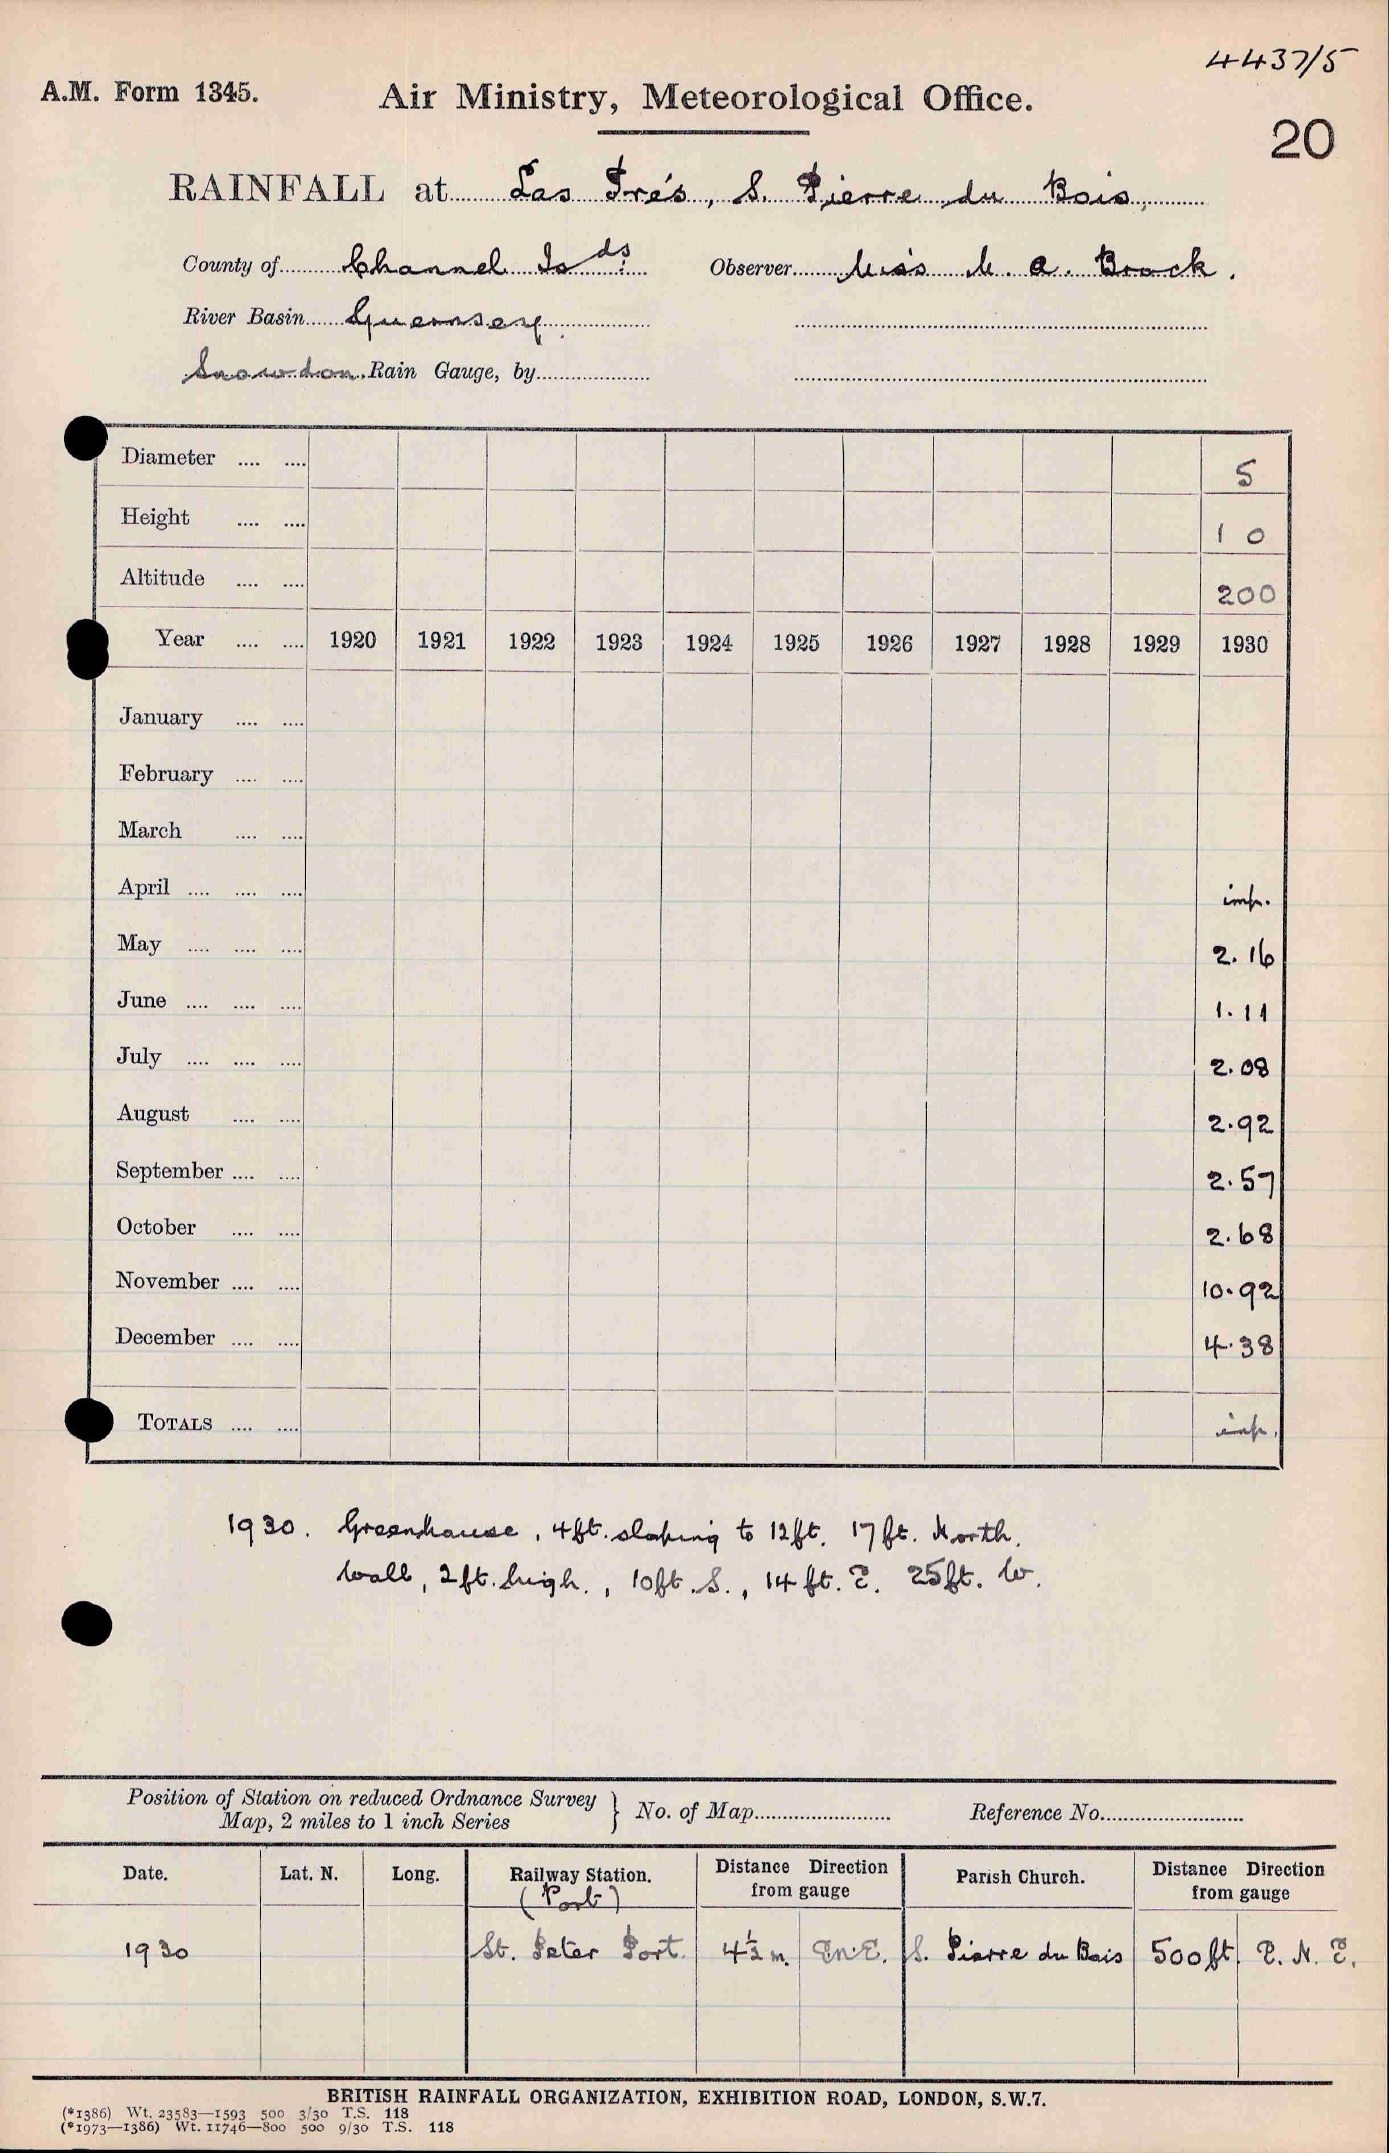 4437/5
A.M. Form 1345.
Air Ministry, Meteorological Office.
20
RAINFALL at Les Prés, S. Pierre du Bois.
County of Channel Isds. Observer Miss M. A. Brock.
River Basin Guernsey.
Snowdon Rain Gauge, by
Diameter .... .... 5
Height .... .... 1 0
Altitude .... .... 200
Year .... .... 1920 1921 1922 1923 1924 1925 1926 1927 1928 1929 1930
January .... ....
February .... ....
March .... ....
April .... .... .... imp.
May .... .... .... 2.16
June .... .... .... 1.11
July .... .... .... 2.08
August .... .... 2.92
September .... .... 2.57
October .... .... 2.68
November .... .... 10.92
December .... .... 4.38
TOTALS .... .... imp.
1930. Greenhouse, 4ft. sloping to 12ft. 17ft. North.
Wall, 2ft. high., 10ft. S., 14 ft. E. 25ft. W.
Position of Station on reduced Ordnance Survey
Map, 2 miles to 1 inch Series } No. of Map Reference No.
Date. Lat. N. Long. Railway Station. Distance Direction from gauge Parish Church. Distance Direction from gauge
(Port)
1930 St. Peter Port. 4½ m. E.N.E. S. Pierre du Bois 500ft. E. N. E.
BRITISH RAINFALL ORGANIZATION, EXHIBITION ROAD, LONDON, S.W.7.
(*1386) Wt. 23583—1593 500 3/30 T.S. 118
(*1973—1386) Wt. 11746—800 500 9/30 T.S. 118